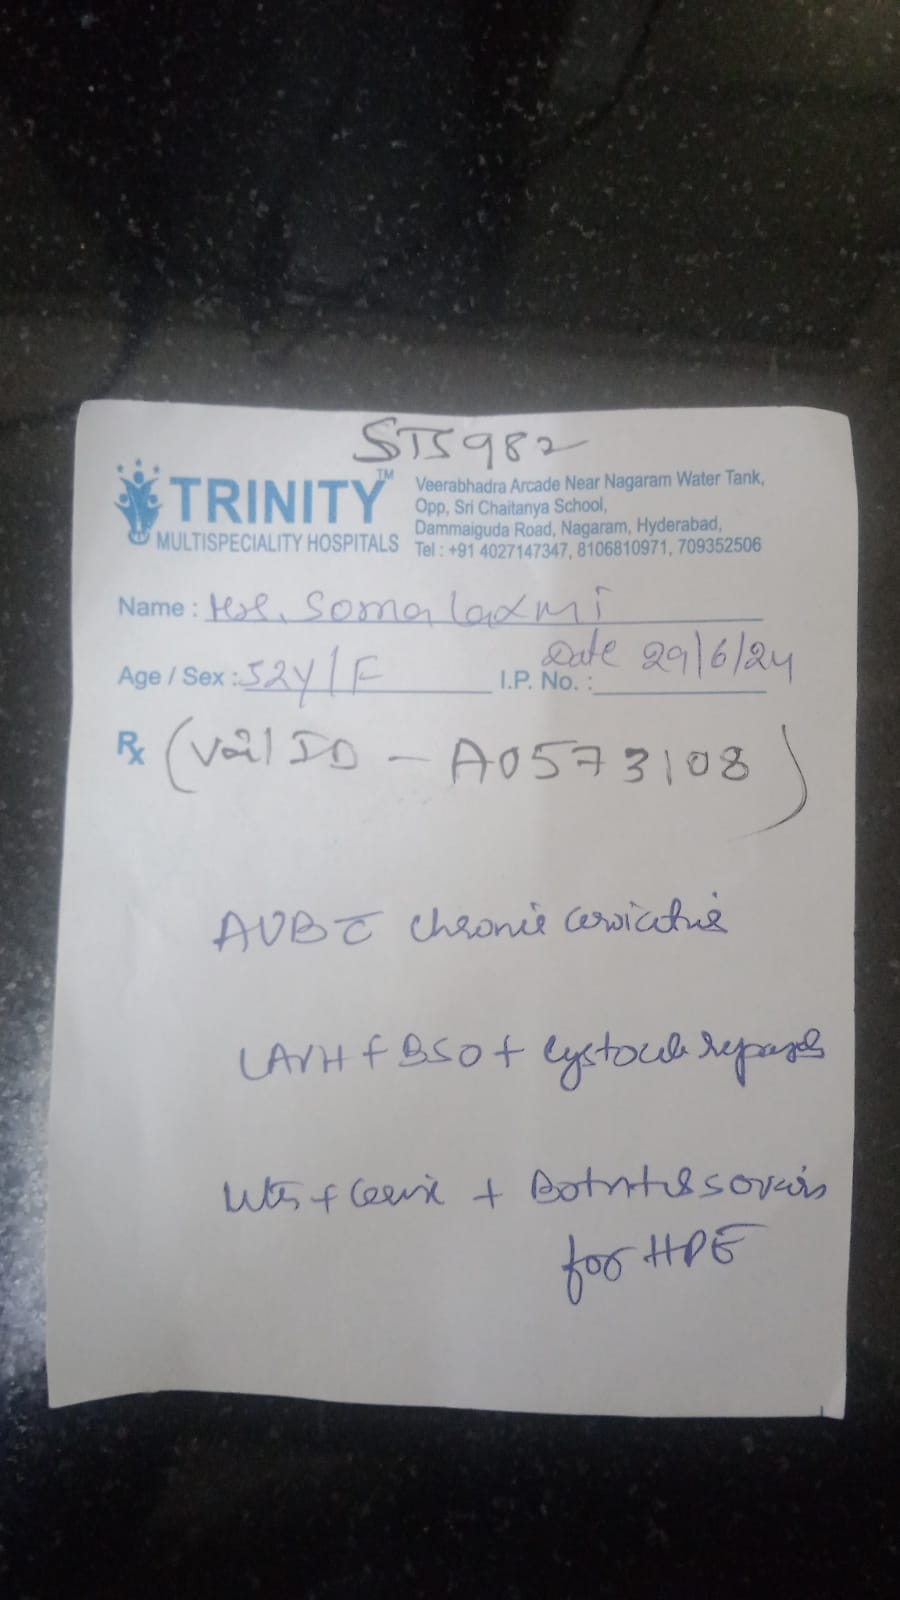 STS982
TRINITY™
MULTISPECIALITY HOSPITALS
Veerabhadra Arcade Near Nagaram Water Tank,
Opp, Sri Chaitanya School,
Dammaiguda Road, Nagaram, Hyderabad,
Tel : +91 4027147347, 8106810971, 709352506
Name : Somalaxmi
Date 29/6/24
Age / Sex : 52Y/F I.P. No. :
Rx (Vail ID - A0573108)
AUB c̄ chronic cervicitis
LAVH + BSO + Cystocele repair
+ Cervix + Both tubes ovaries
for HPE